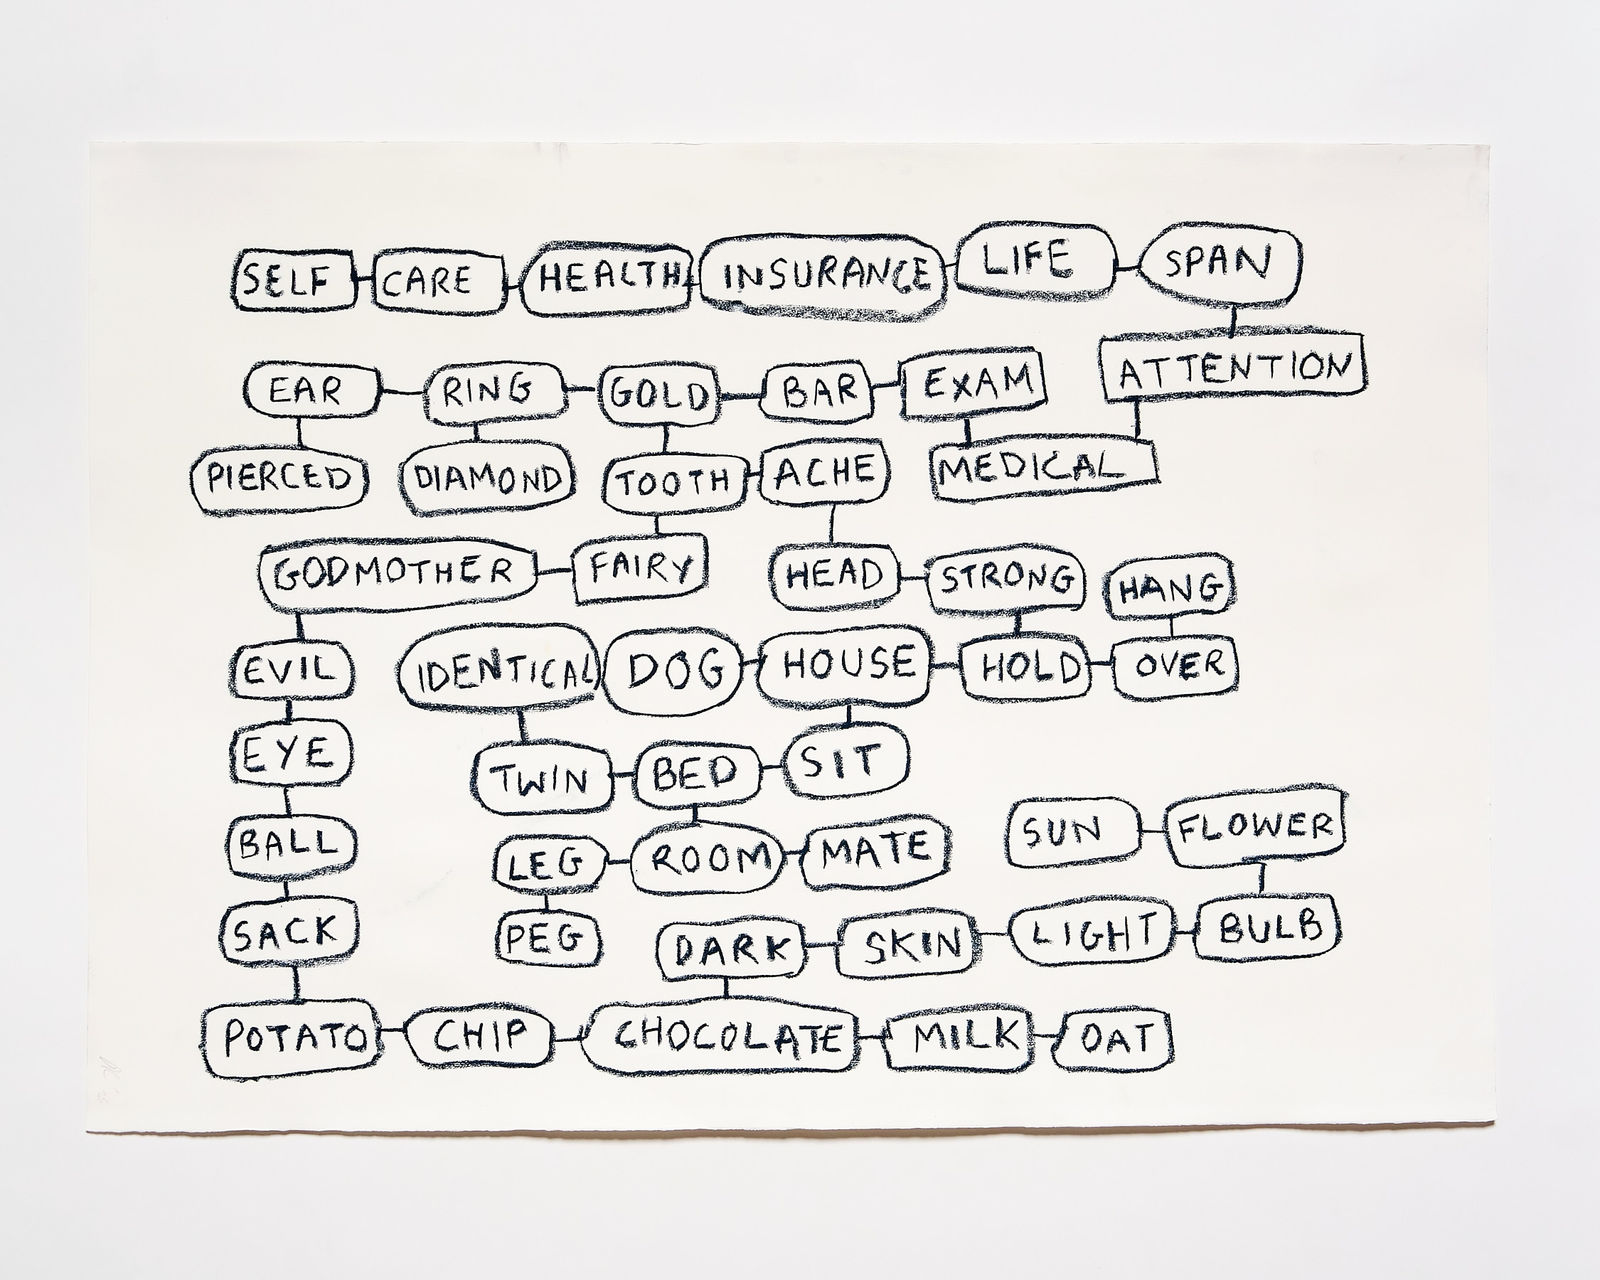 SELF CARE HEALTH INSURANCE LIFE SPAN
ATTENTION
EAR RING GOLD BAR EXAM
PIERCED DIAMOND TOOTH ACHE MEDICAL
GODMOTHER FAIRY HEAD STRONG HANG
EVIL IDENTICAL DOG HOUSE HOLD OVER
EYE TWIN BED SIT
BALL LEG ROOM MATE SUN FLOWER
SACK PEG DARK SKIN LIGHT BULB
POTATO CHIP CHOCOLATE MILK OAT